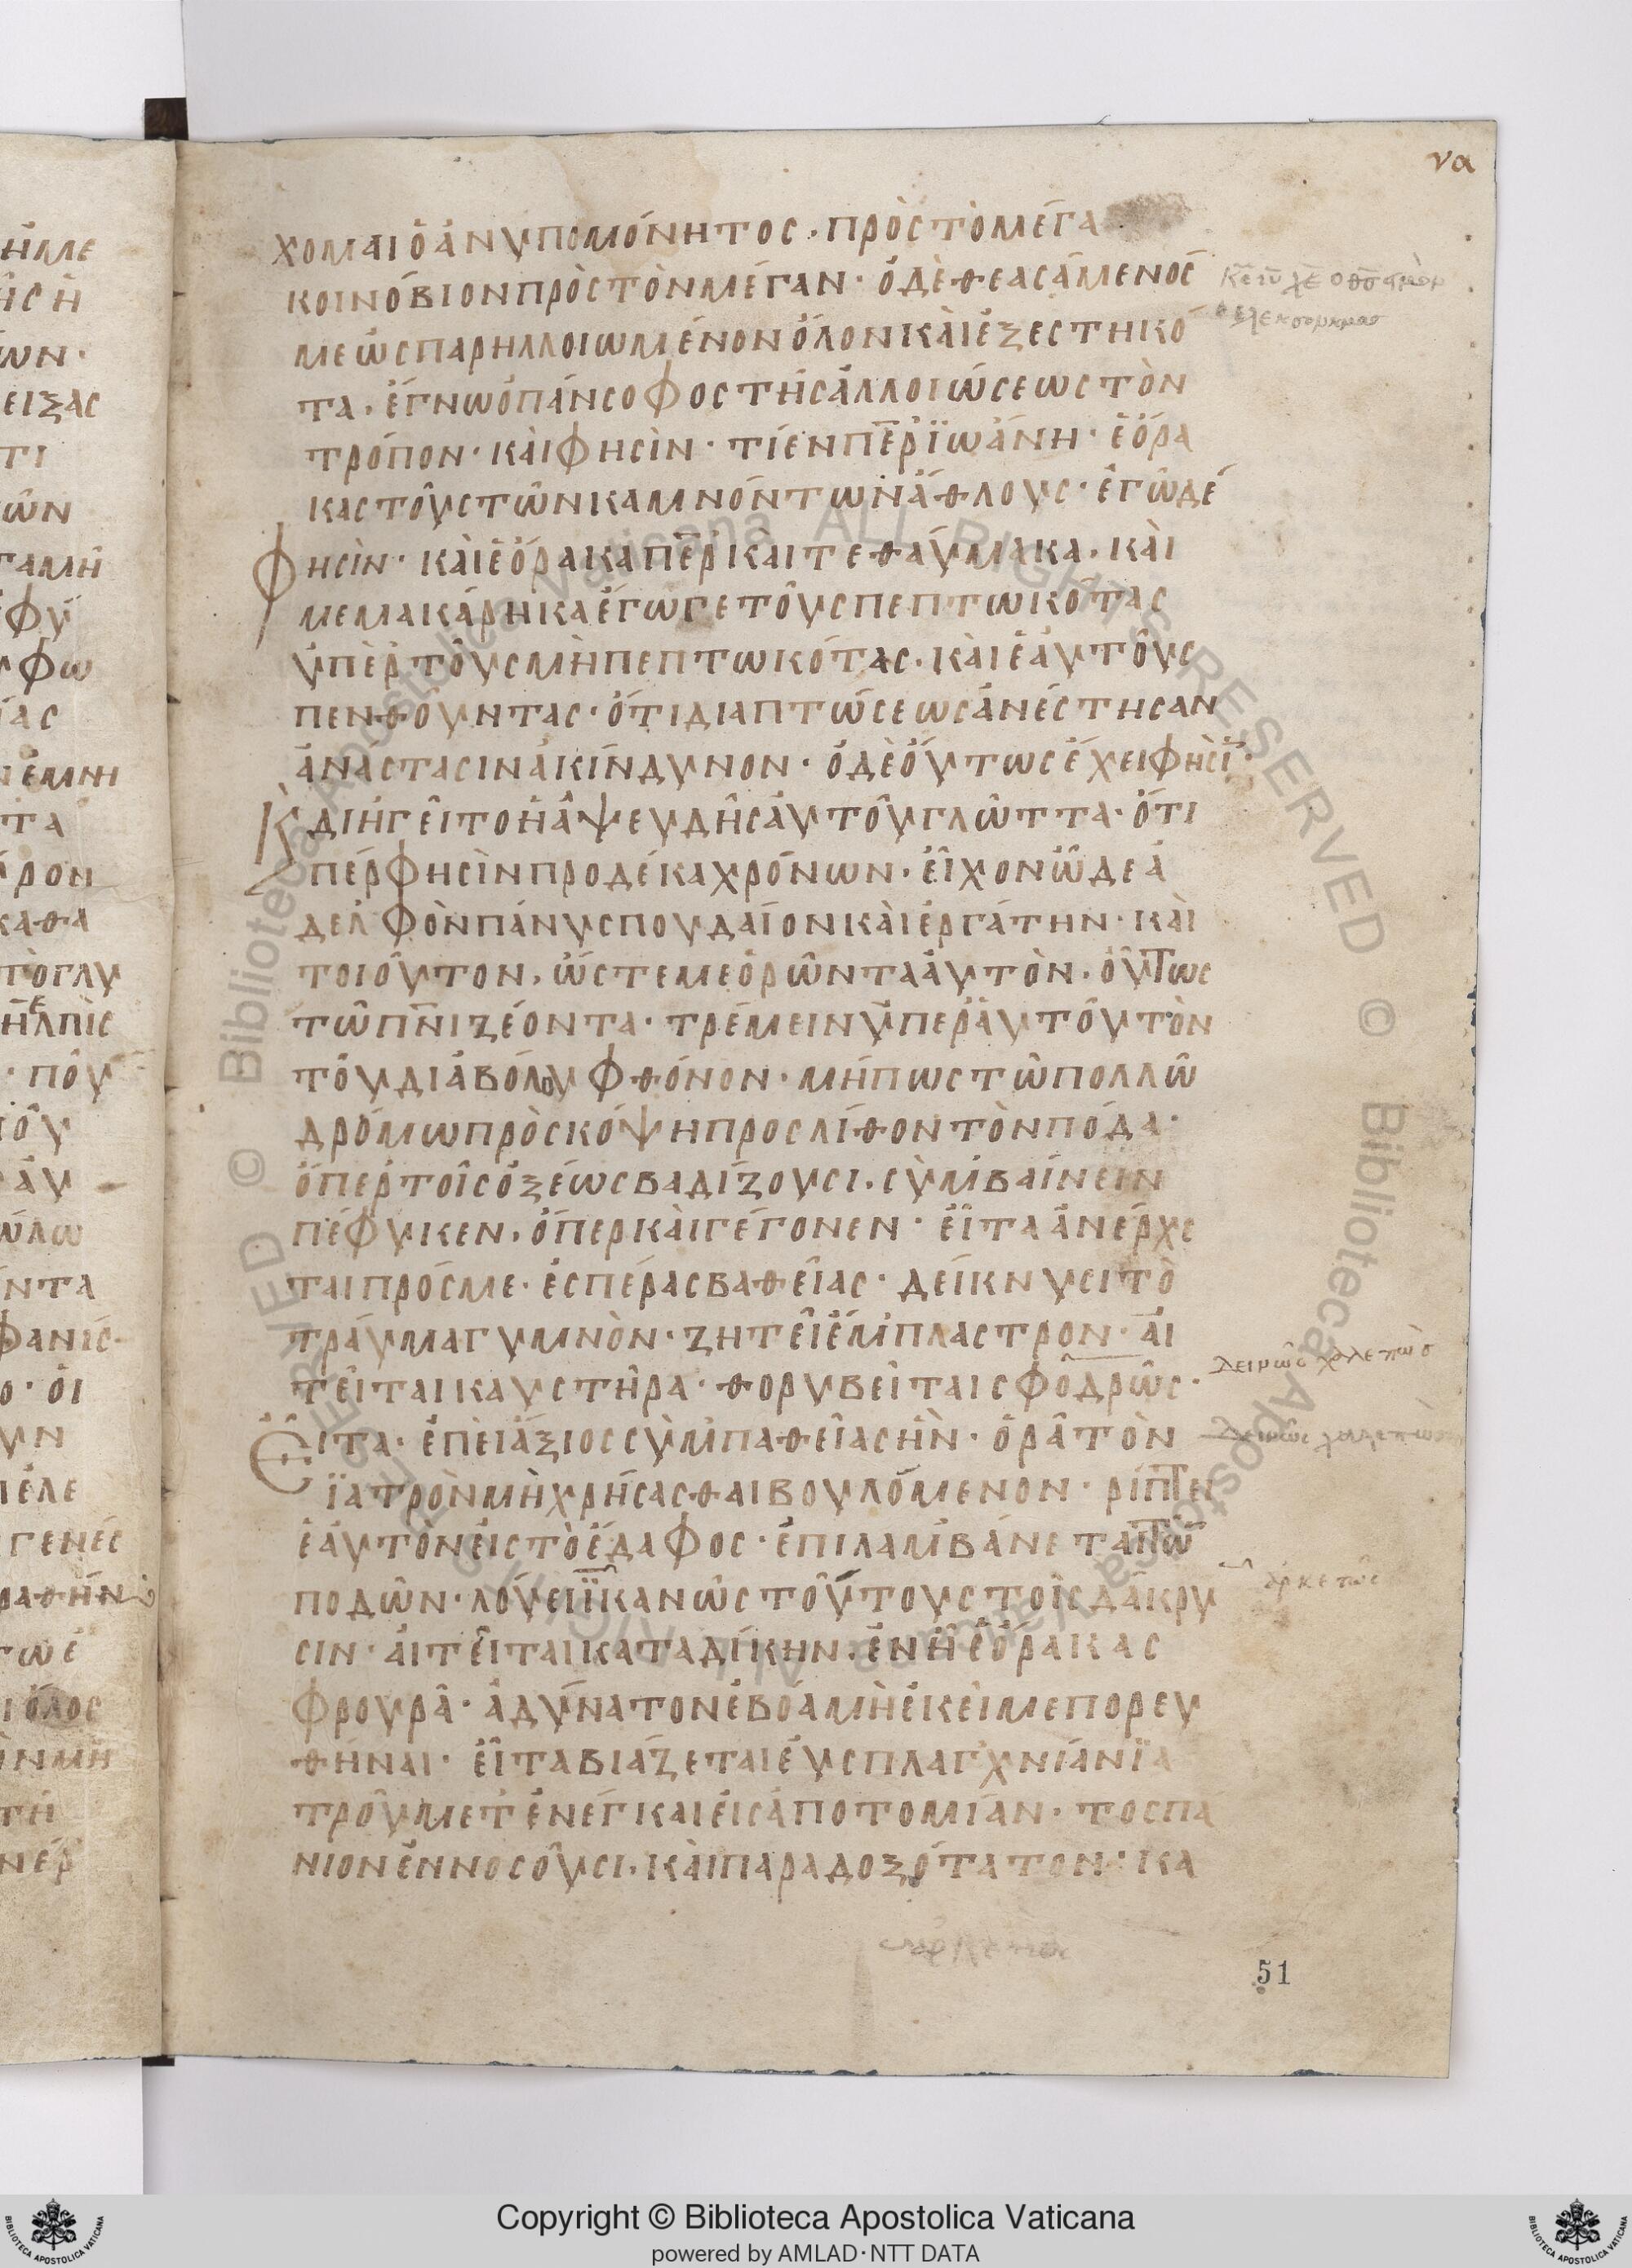 να
χομαι ὁ ἀνυπομόνητος· πρὸς τὸ μέγα
κοινόβιον πρὸς τὸν μέγαν· ὁ δὲ θεασάμενός
με ὡς παρηλλοιωμένον ὅλον καὶ ἐξεστηκό
τα, ἔγνω ὁ πάνσοφος τῆς ἀλλοιώσεως τὸν
τρόπον· καὶ φησὶν· τί ἐν περ ϊωάννη· ἑόρα
κας τοὺς τῶν καμνόντων ἄθλους· ἐγὼ δέ
φησὶν· καὶ ἑόρακα περ καὶ τεθαύμακα, καὶ
μεμακάρηκα ἔγωγε τοὺς πεπτωκότας
ὑπὲρ τοὺς μὴ πεπτωκότας, καὶ ἑαυτοὺς
πενθοῦντας· ὅτι διὰ πτώσεως ἀνέστησαν
ἀνάστασιν ἀκίνδυνον· ὁ δὲ οὕτως ἔχει φησῒ·
Κ διηγεῖτο ἡ ἀψευδὴς αὐτοῦ γλῶττα· ὅτι
περ φησὶν προ δέκα χρόνων, εἶχον ὧδε ἀ
δελφὸν πάνυ σπουδαῖον καὶ ἐργάτην· καὶ
τοιοῦτον, ὥστε με ὁρῶντα αὐτὸν, οὕτως
τῶ πνι ζέοντα· τρέμειν ὑπερ αὐτοῦ τὸν
τοῦ διαβόλου φθόνον· μήπως τῶ πολλῶ
δρόμω προσκόψη προς λίθον τὸν πόδα·
ὅπερ τοῖς ὀξέως βαδίζουσι, συμβαίνειν
πέφυκεν, ὅπερ καὶ γέγονεν· εἶτα ἀνέρχε
ται πρός με· ἑσπέρας βαθείας· δείκνυσι τὸ
τραῦμα γυμνὸν· ζητεῖ ἔμπλαστρον· αἰ
τεῖται καυστῆρα· θορυβεῖται σφοδρῶς·
Εἶτα· ἐπεὶ ἄξιος συμπαθείας ἦν· ὁρᾶ τὸν
ϊατρὸν μὴ χρήσασθαι βουλόμενον· ρίπτει
ἑαυτὸν εἰς τὸ ἔδαφος· ἐπιλαμβάνεται τῶν
ποδῶν· λούει ϊκανῶς τούτους τοῖς δάκρυ
σιν· αἰτεῖται καταδίκην, ἐν ἧ ἑόρακας
φρουρᾶ· ἀδύνατον ἐβόα μὴ ἐκεῖ με πορευ
θῆναι· εἶτα βιάζεται εὐσπλαγχνίαν ϊα
τροῦ μετενέγκαι εἰς ἀποτομίαν· το σπά
νιον ἐν νοσοῦσι, καὶ παραδοξότατον· κα
δεινῶς χαλεπῶς
δεινῶς χαλεπῶς
ἀρκετῶς
51
Copyright © Biblioteca Apostolica Vaticana
powered by AMLAD·NTT DATA